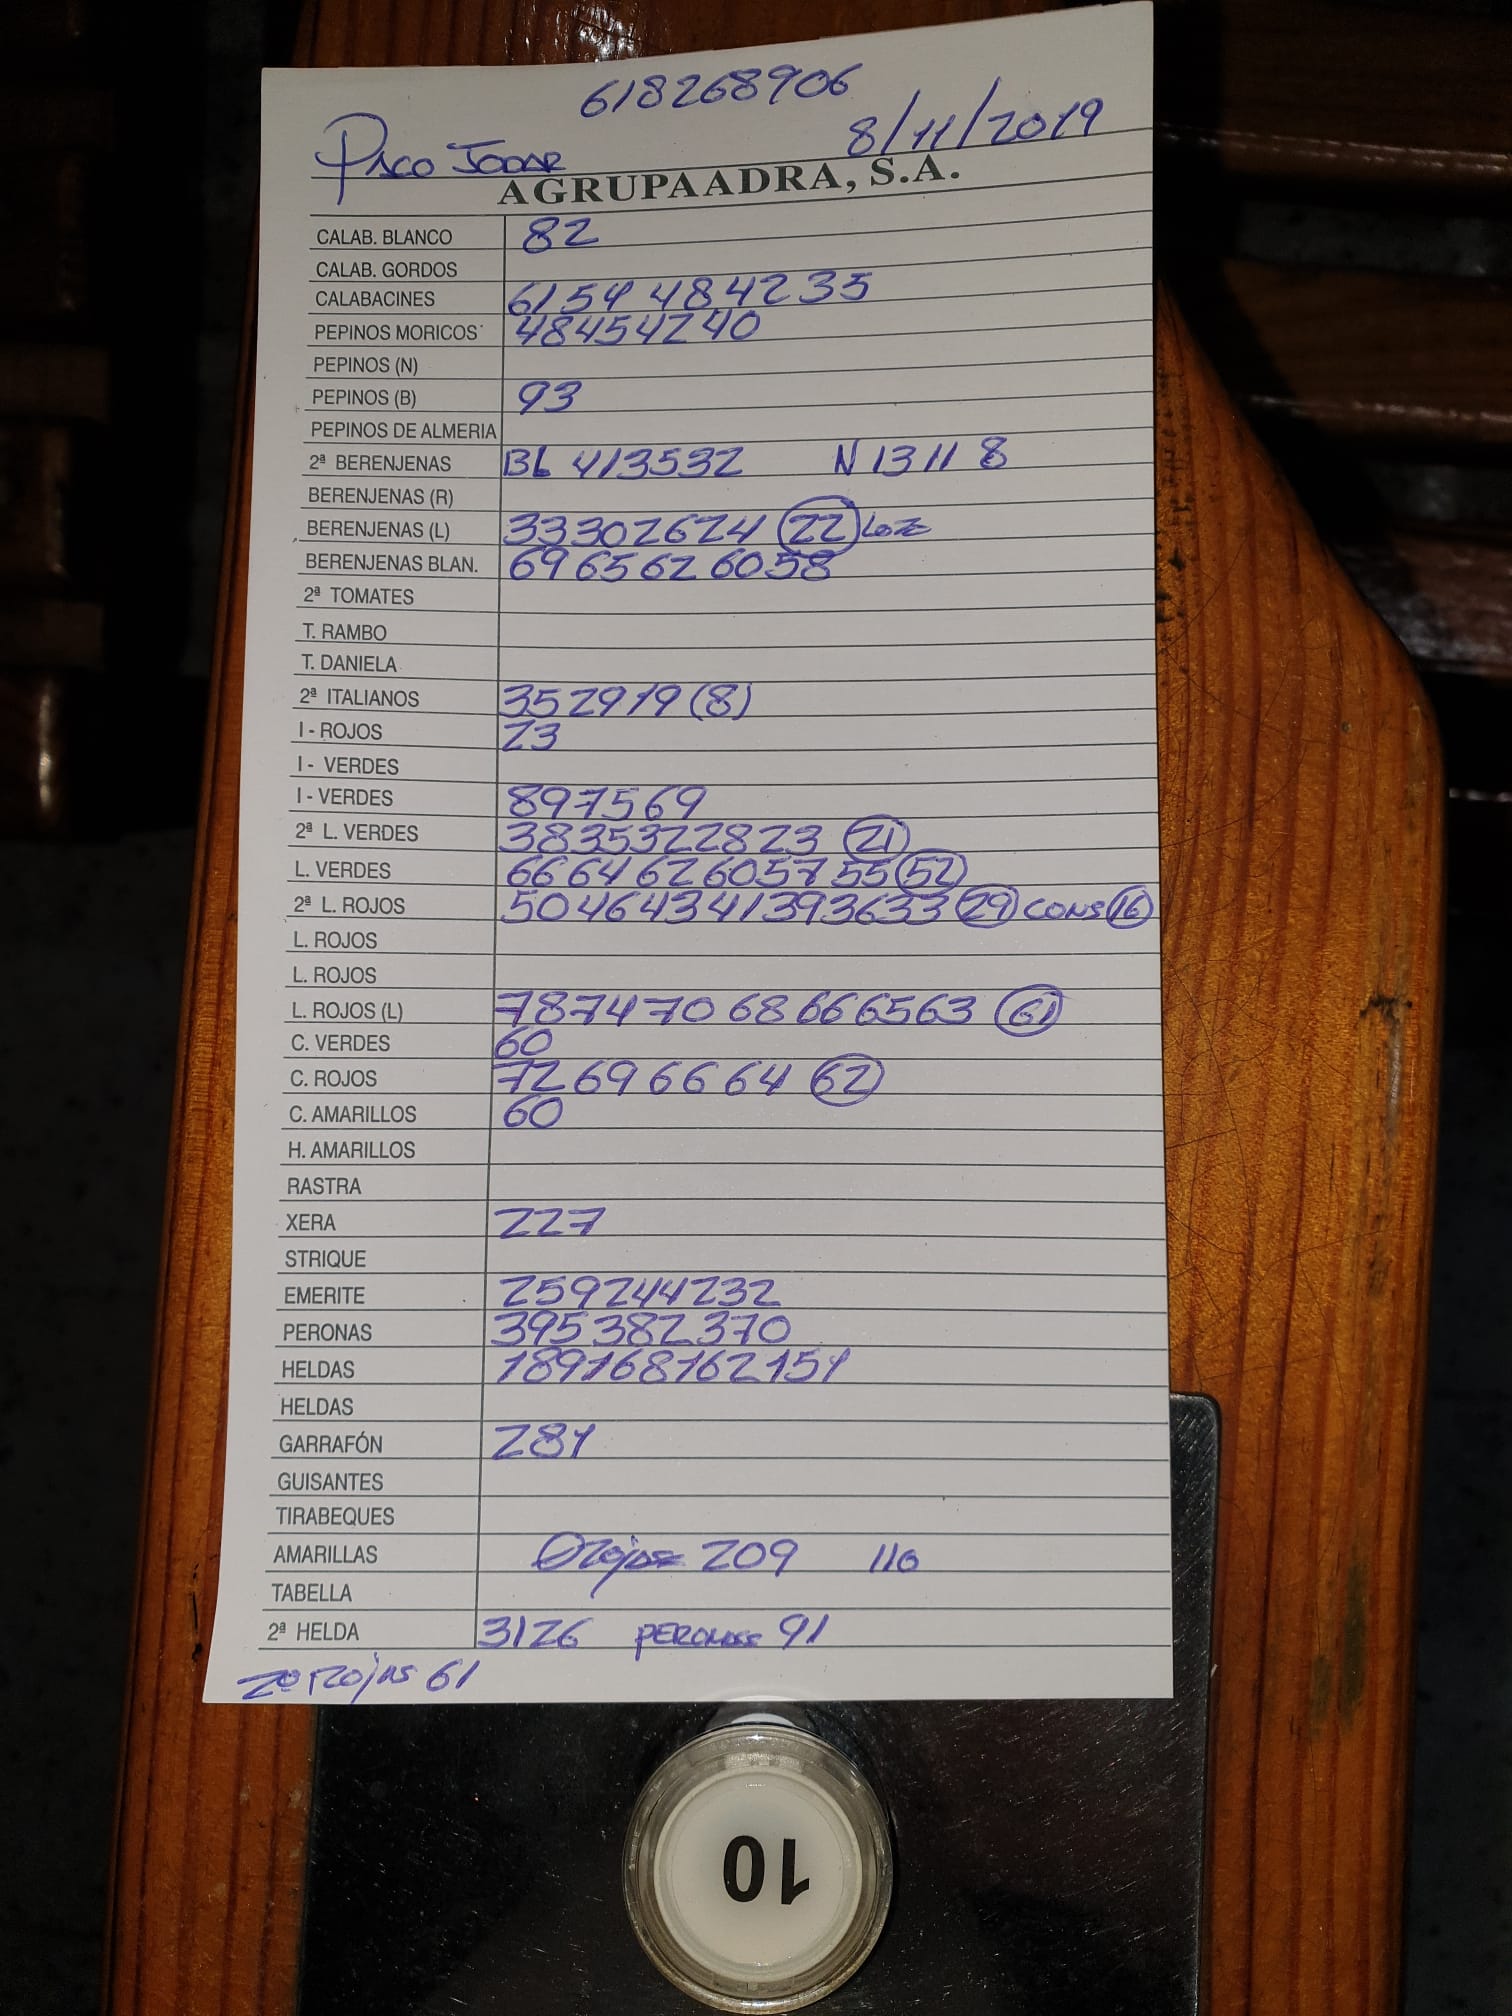 618268906
Paco Jodar 8/11/2019
AGRUPAADRA, S.A.
CALAB. BLANCO 82
CALAB. GORDOS
CALABACINES 61 54 48 42 35
PEPINOS MORICOS 48 45 42 40
PEPINOS (N)
PEPINOS (B) 93
PEPINOS DE ALMERIA
2ª BERENJENAS BL 41 35 32 N 13 11 8
BERENJENAS (R)
BERENJENAS (L) 33 30 26 24 22
BERENJENAS BLAN. 69 65 62 60 58
2ª TOMATES
T. RAMBO
T. DANIELA
2ª ITALIANOS 35 29 19 (8)
I - ROJOS 23
I - VERDES
I - VERDES 89 75 69
2ª L. VERDES 38 35 32 28 23 21
L. VERDES 66 64 62 60 57 55 52
2ª L. ROJOS 50 46 43 41 39 36 33 29 CONS 16
L. ROJOS
L. ROJOS
L. ROJOS (L) 78 74 70 68 66 65 63 61
C. VERDES 60
C. ROJOS 72 69 66 64 62
C. AMARILLOS 60
H. AMARILLOS
RASTRA
XERA 227
STRIQUE
EMERITE 259 244 232
PERONAS 395 382 370
HELDAS 189 168 162 154
HELDAS
GARRAFÓN 284
GUISANTES
TIRABEQUES
AMARILLAS 209 110
TABELLA
2ª HELDA 31 26 PERONAS 91
2ª Rojas 61
10